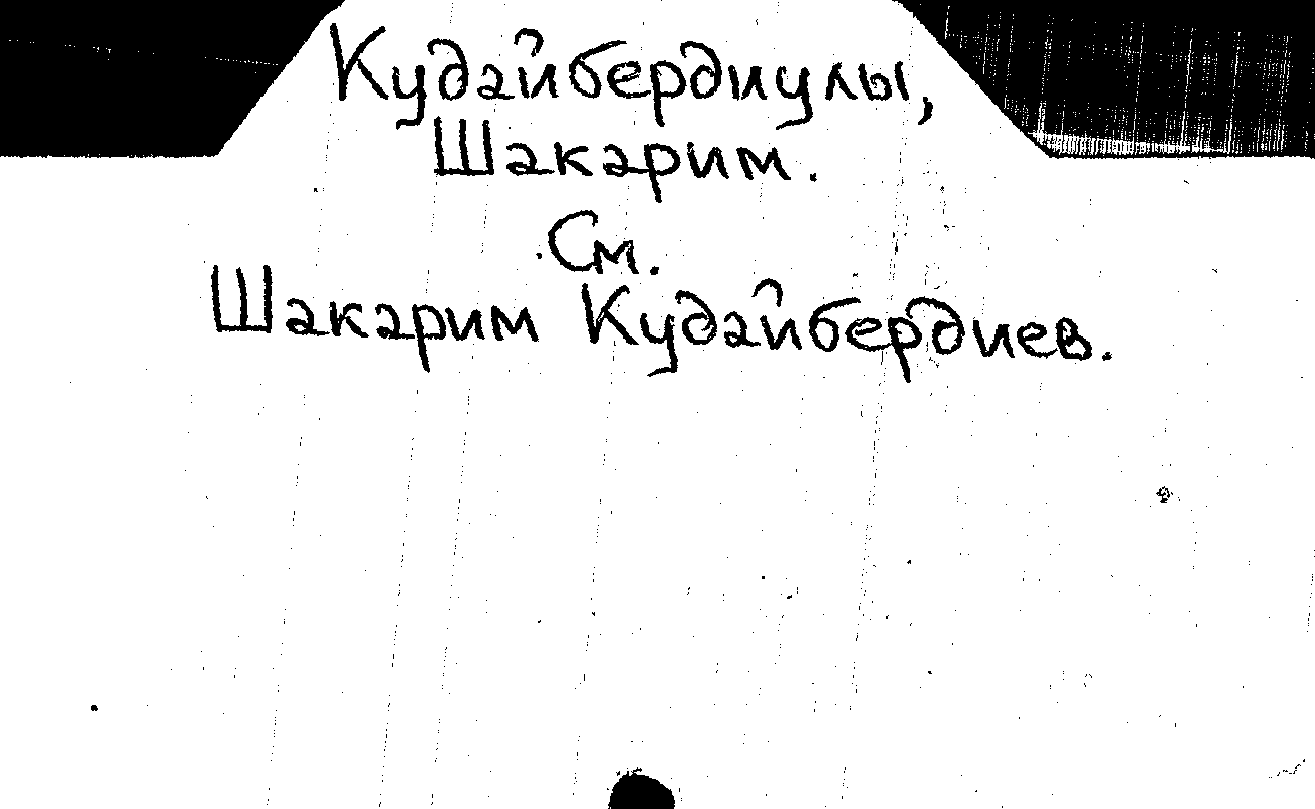 Кудайбердиулы,
Шакарим.
См.
Шакарим Кудайбердиев.